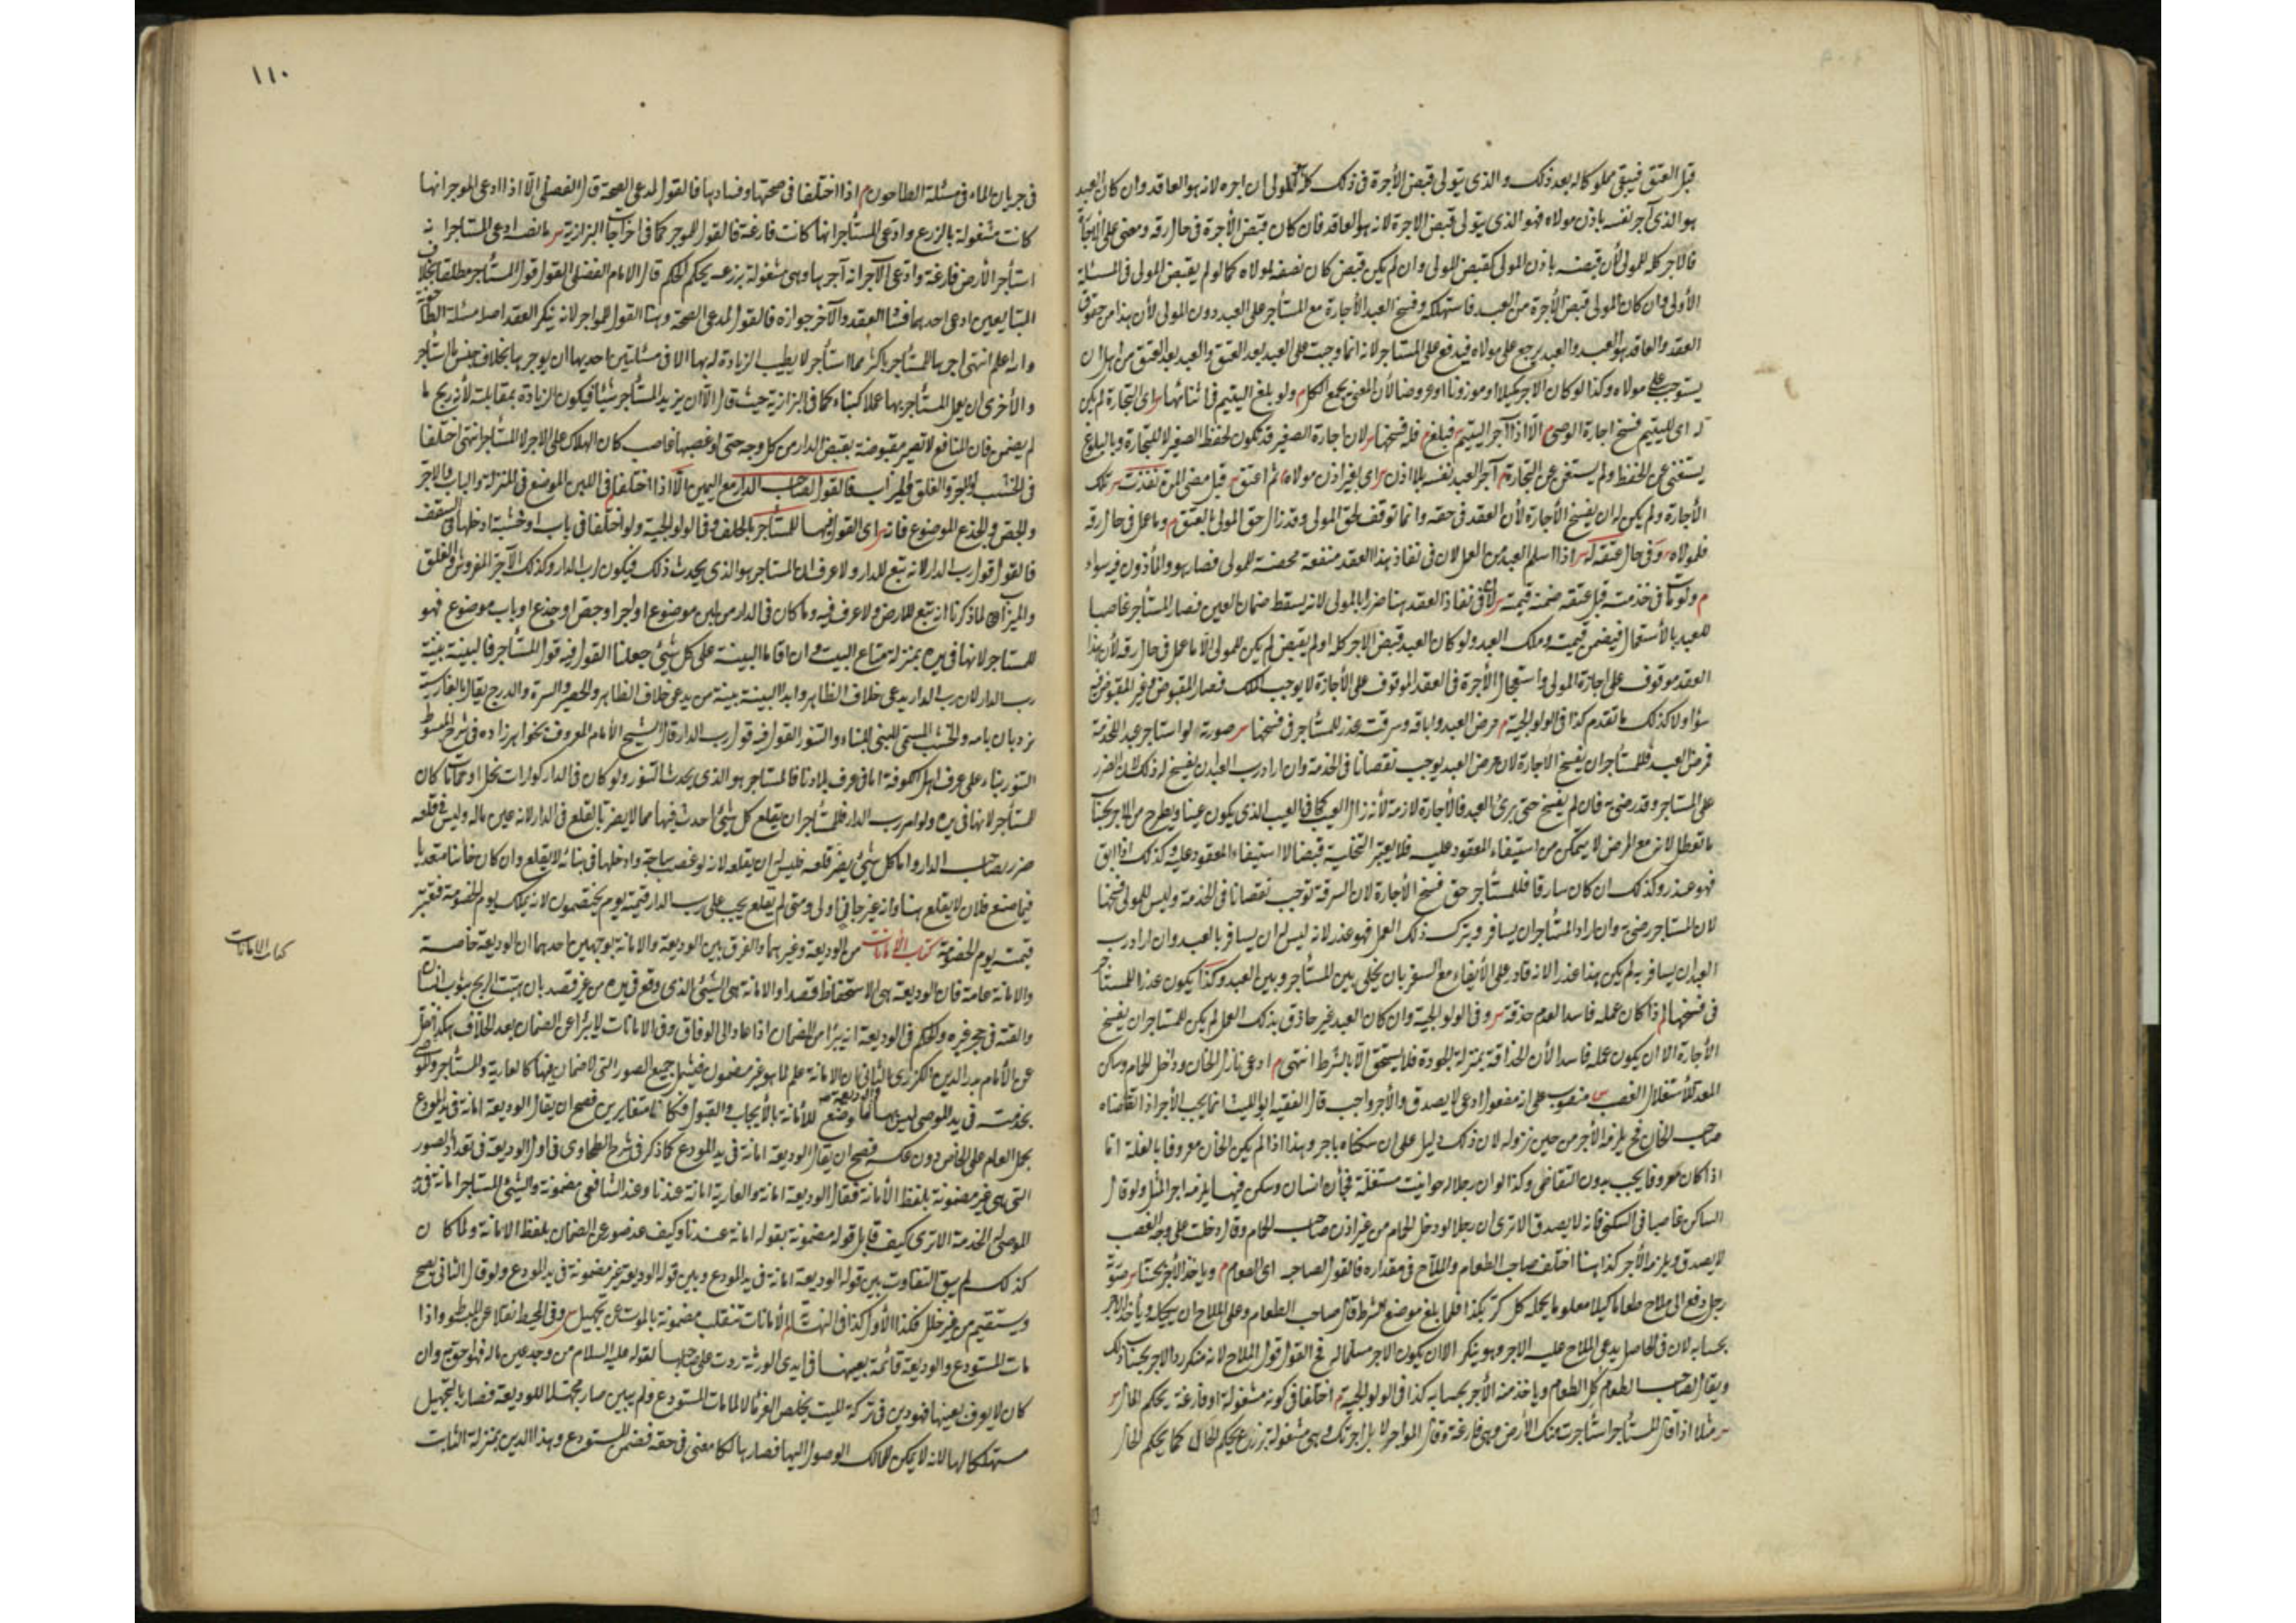 قبل العتق فيبقى مملوكا له بعد ذلك والذى يتولى قبض الأجرة فى ذلك كله المولى ان اجره لانه هو العاقد وان كان العبد
هو الذى آجر نفسه باذن مولاه فهو الذى يتولى قبض الاجرة لانه هو العاقد فان كان قبض الأجرة فى حال رقه ومضى على الأجازة
فالاجر كله للمولى لأن قبضه باذن المولى كقبض المولى وان لم يكن قبض كان نصفه لمولاه كما لو لم يقبض المولى فى المسئلة
الأولى وان كان المولى قبض الأجرة من العبد فاستهلكه وفسخ العبد الأجارة مع المستأجر على العبد دون المولى لأن هذا من حقوق
العقد والعاقد هو العبد والعبد يرجع على مولاه فيدفع على المستاجر لانه انما وجبت على العبد بعد العتق والعبد بعد العتق من اهل ان
يستوجب على مولاه وكذا لو كان الاجر مكيلا او موزونا او عروضا لأن المعنى يجمع الكل م ولو بلغ اليتيم فى اثنائها س اى التجارة لم يكن
له اى لليتيم فسخ اجارة الوصى م الا اذا آجر اليتيم س فبلغ م فله فسخها س لان اجارة الصغير قد تكون لحفظ الصغير لا للتجارة وبالبلوغ
يستغنى عن الحفظ ولم يستغن عن التجارة م آجر العبد نفسه بلا اذن س اى بغير اذن مولاه م ثم اعتق س قبل مضى المدة نفذت س تلك
الأجارة ولم يكن له ان يفسخ الأجارة لأن العقد فى حقه وانما توقف لحق المولى وقد زال حق المولى بالعتق م وما عمل فى حال رقه
فلمولاه س وفى حال عتقه له س اذا سلم العبد من العمل لان فى نفاذ هذا العقد منفعة محضة للمولى فصار هو والمأذون فيه سواء
م ولو مات فى خدمته قبل عتقه ضمنه قيمته س لأن فى نفاذ العقد هنا ضررا بالمولى لانه يسقط ضمان العين فصار المستأجر غاصبا
للعبد بالأستعمال فيضمن قيمته وملك العبد ولو كان العبد قبض الاجر كله او لم يقبض لم يكن للمولى الا ما عمل فى حال رقه لأن هذا
العقد موقوف على اجازة المولى واستعجال الأجرة فى العقد الموقوف على الأجازة لا يوجب الملك فصار المقبوض وغير المقبوض فيه
سواء ولا كذلك ما تقدم كذا فى الولوالجية م مرض العبد واباقه وسرقته عذر للمستأجر فى فسخها س صورته لو استاجر عبدا للخدمة
فمرض العبد فللمستأجر ان يفسخ الاجارة لان مرض العبد يوجب نقصانا فى الخدمة وان اراد رب العبد ان يفسخ له ذلك لأن الضرر
على المستاجر وقد رضى به فان لم يفسخ حتى برئ العبد فالأجارة لازمة لأنه زال العيب كما فى العيب الذى يكون عينا ويطرح من الاجر بحساب
ما تعطل لانه مع المرض لا يتمكن من استيفاء المعقود عليه فلا يعتبر التخلية قبضا لا استيفاء المعقود عليه وكذلك اذا ابق
فهو عذر وكذلك ان كان سارقا فللمستأجر حق فسخ الأجارة لان السرقة توجب نقصانا فى الخدمة وليس للمولى فسخها
لان المستاجر رضى به وان اراد المستأجر ان يسافر ويترك ذلك العمل فهو عذر لانه ليس له ان يسافر بالعبد وان اراد رب
العبد ان يسافر به لم يكن هذا عذرا لانه قادر على الأيفاء مع السفر بان يخلى بين المستأجر وبين العبد وكذا يكون عذرا للمستأجر
فى فسخها م اذا كان عمله فاسدا لعدم حذقه س وفى الولوالجية وان كان العبد غير حاذق بذلك العمل لم يكن للمستاجر ان يفسخ
الأجارة الا ان يكون عمله فاسدا لأن الحذاقة بمنزلة الجودة فلا يستحق الا بالشرط انتهى م ادعى نازل الخان وداخل الحمام وساكن
المعد للأستغلال الغصب س منصوب على انه مفعول ادعى لا يصدق والأجر واجب قال الفقيه ابو الليث انما يجب الأجر اذا تقاضاه
صاحب الخان فح يلزمه الأجر من حين نزوله لان ذلك دليل على ان سكناه باجر وهذا اذا لم يكن الخان معروفا بالغلة اما
اذا كان معروفا يجب بدون التقاضى وكذا لو ان رجلا له حوانيت مستغلة فجأ انسان وسكن فيها يلزمه اجر المثل ولو قال
الساكن غاصبا فى السكنى فانه لا يصدق الا ترى ان رجلا لو دخل الحمام من غير اذن صاحب الحمام وقال دخلت على وجه الغصب
لا يصدق ويلزمه الأجر كذا هنا اختلف صاحب الطعام والملاح فى مقداره فالقول لصاحبه اى الطعام م وياخذ الأجر بحسابه س صورته
رجل دفع الى ملاح طعاما كيلا معلوما يحمله كل كر بكذا فلما بلغ موضع الشرط قال صاحب الطعام وعلى الملاح ان يكيله ويأخذ الأجر
بحسابه لان فى الحاصل يدعى الملاح عليه الاجر وهو ينكر الا ان يكون الاجر مسلما له فح القول قول الملاح لانه منكر رد الاجر بحساب ذلك
ويقال لصاحب الطعام كل الطعام وياخذ منه الأجر بحسابه كذا فى الولوالجية م اختلفا فى كونه مشغولة او فارغة يحكم الحال س
س مثلا اذا قال المستأجر استأجرت منك الأرض وهى فارغة وقال المواجر لا بل اجرتك وهى مشغولة بزرع يحكم الحال كما يحكم الحال
١١٠
فى جريان الماء فى مسئلة الطاحون م اذا اختلفا فى صحتها وفسادها فالقول لمدعى الصحة قال الفضلى الا اذا ادعى الموجر انها
كانت مشغولة بالزرع وادعى المستأجر انها كانت فارغة فالقول للموجر كما فى اخر اجارات البزازية س ما نصه ادعى المستاجر انه
استأجر الأرض فارغة وادعى الآجر انه آجرها وهى مشغولة بزرعه يحكم الحكم قال الامام الفضلى القول قول المستأجر مطلقا بخلاف
المتبايعين ادعى احدهما فساد العقد والآخر جوازه فالقول لمدعى الصحة وهنا القول للمواجر لانه ينكر العقد اصلا مسئلة الطاحونة
والله اعلم انتهى اجرها المستأجر باكثر مما استأجر لا يطيب الزيادة له بها الا فى مسئلتين احديهما ان يوجرها بخلاف جنس ما استأجر
والأخرى ان يعمل المستأجر بها عملا كبناء كما فى البزازية حيث قال الا ان يزيد المستأجر شيئا فيكون الزيادة بمقابلته لأنه ربح ما
لم يضمن فان المنافع لا تصير مقبوضة بقبض الدار من كل وجه حتى لو غصبها غاصب كان الهلاك على الاجر لا المستأجر انتهى اختلفا
فى الخشب والحجر والغلق والميزاب فالقول لصاحب الدار مع اليمين الا اذا اختلفا م فى اللبن الموضوع فى المنزلة والباب والآجر
والجص والجذع الموضوع فانه س اى القول فيها للمستأجر بالحلف وفى الولوالجية ولو اختلفا فى باب او خشبة ادخلها فى السقف
فالقول قول رب الدار لانه تبع للدار ولا عرف ان المستاجر هو الذى يحدث ذلك فيكون لرب الدار وكذلك الآجر المفروش والغلق
والميزاب لما ذكرنا انه تبع للارض ولا عرف فيه وما كان فى الدار من لبن موضوع او اجر او جص او جذع او باب موضوع فهو
للمستاجر لانها فى يده بمنزلة متاع البيت وان اقاما البينة على كل شئ جعلنا القول فيه قول المستأجر فالبينة بينة
رب الدار لان رب الدار يدعى خلاف الظاهر وابدا البينة بينة من يدعى خلاف الظاهر والحصر والسترة والدرج يقال بالفارسية
نردبان بامه والخشب المبنى للبناء والتنور القول فيه قول رب الدار قال الشيخ الأمام المعروف بخواهر زاده فى شرح المبسوط
التنور بناء على عرف اهل الكوفة اما فى عرف بلادنا فالمستاجر هو الذى يحدث التنور ولو كان فى الدار كوارات نحل او حمامات كان
للمستأجر لانها فى يده ولو امر رب الدار فللمستأجر ان يقلع كل شئ احدث فيها مما لا يضر بالقلع فى الدار لانه عين ماله وليس فى قلعه
ضرر بصاحب الدار واما كل شئ يضر قلعه فليس له ان يقلعه لانه لو غصب ساجة وادخلها فى بنائه لا يقلع وان كان خائنا متعديا
فيما صنع فلان لا يقلع هنا وانه غير جانى اولى ومتى لم يقلع يجب على رب الدار قيمته يوم يختصمون لانه يملك يوم الخصومة فتعتبر
قيمته يوم الخصومة كتاب الأمانات من الوديعة وغيرها والفرق بين الوديعة والامانة بوجهين احدهما ان الوديعة خاصة
كتاب الامانات
والامانة عامة فان الوديعة هى الاستحفاظ قصدا والامانة هى الشئ الذى وقع فى يده من غير قصد بان هبت الريح بثوب انسان
والقته فى حجر غيره والحكم فى الوديعة انه يبرأ من الضمان اذا عاد الى الوفاق وفى الامانات لا يبرأ عن الضمان بعد الخلاف هكذا نقل
عن الأمام بدر الدين الكردرى الثانى ان الامانة علم لما هو غير مضمون فيشمل جميع الصور التى لا ضمان فيها كالعارية والمستأجر والموصى
بخدمته فى يد الموصى له بها والوديعة ما وضع للأمانة بالأيجاب والقبول فكانا متغايرين فصح ان يقال الوديعة امانة فى يد المودع
بحمل العام على الخاص دون عكسه فصح ان يقال الوديعة امانة فى يد المودع كما ذكر فى شرح الطحاوى فى اول الوديعة فى تعداد الصور
التى هى غير مضمونة بلفظ الأمانة فقال الوديعة امانة والعارية امانة عندنا وعند الشافعى مضمونة والشئ المستاجر امانة فى يد
الموصى له بالخدمة الا ترى كيف قابل قوله مضمونة بقوله امانة عندنا وكيف عد ضور عن الضمان بلفظ الامانة ولما كان
كذلك لم يبق التفاوت بين قوله الوديعة امانة فى يد المودع وبين قوله الوديعة غير مضمونة فى يد المودع ولو قال الثانى يصح
ويستقيم من غير خلل فكذا الأول كذا فى النهاية م الأمانات تنقلب مضمونة بالموت عن تجهيل س وفى المحيط نقلا عن المبسوط واذا
مات المستودع والوديعة قائمة بعينها فى ايدى الورثة ردت على صاحبها لقوله عليه السلام من وجد عين ماله فهو احق به وان
كان لا يعرف بعينها فهو دين فى تركة الميت يخاص الغرماء لما مات المستودع ولم يبين صار مجهلا للوديعة فصار بالتجهيل
مستهلكا لها لانه لا يمكن للمالك الوصول اليها فصار هالكا معنى فى حقه فضمن المستودع وهذا الدين بمنزلة الثابت